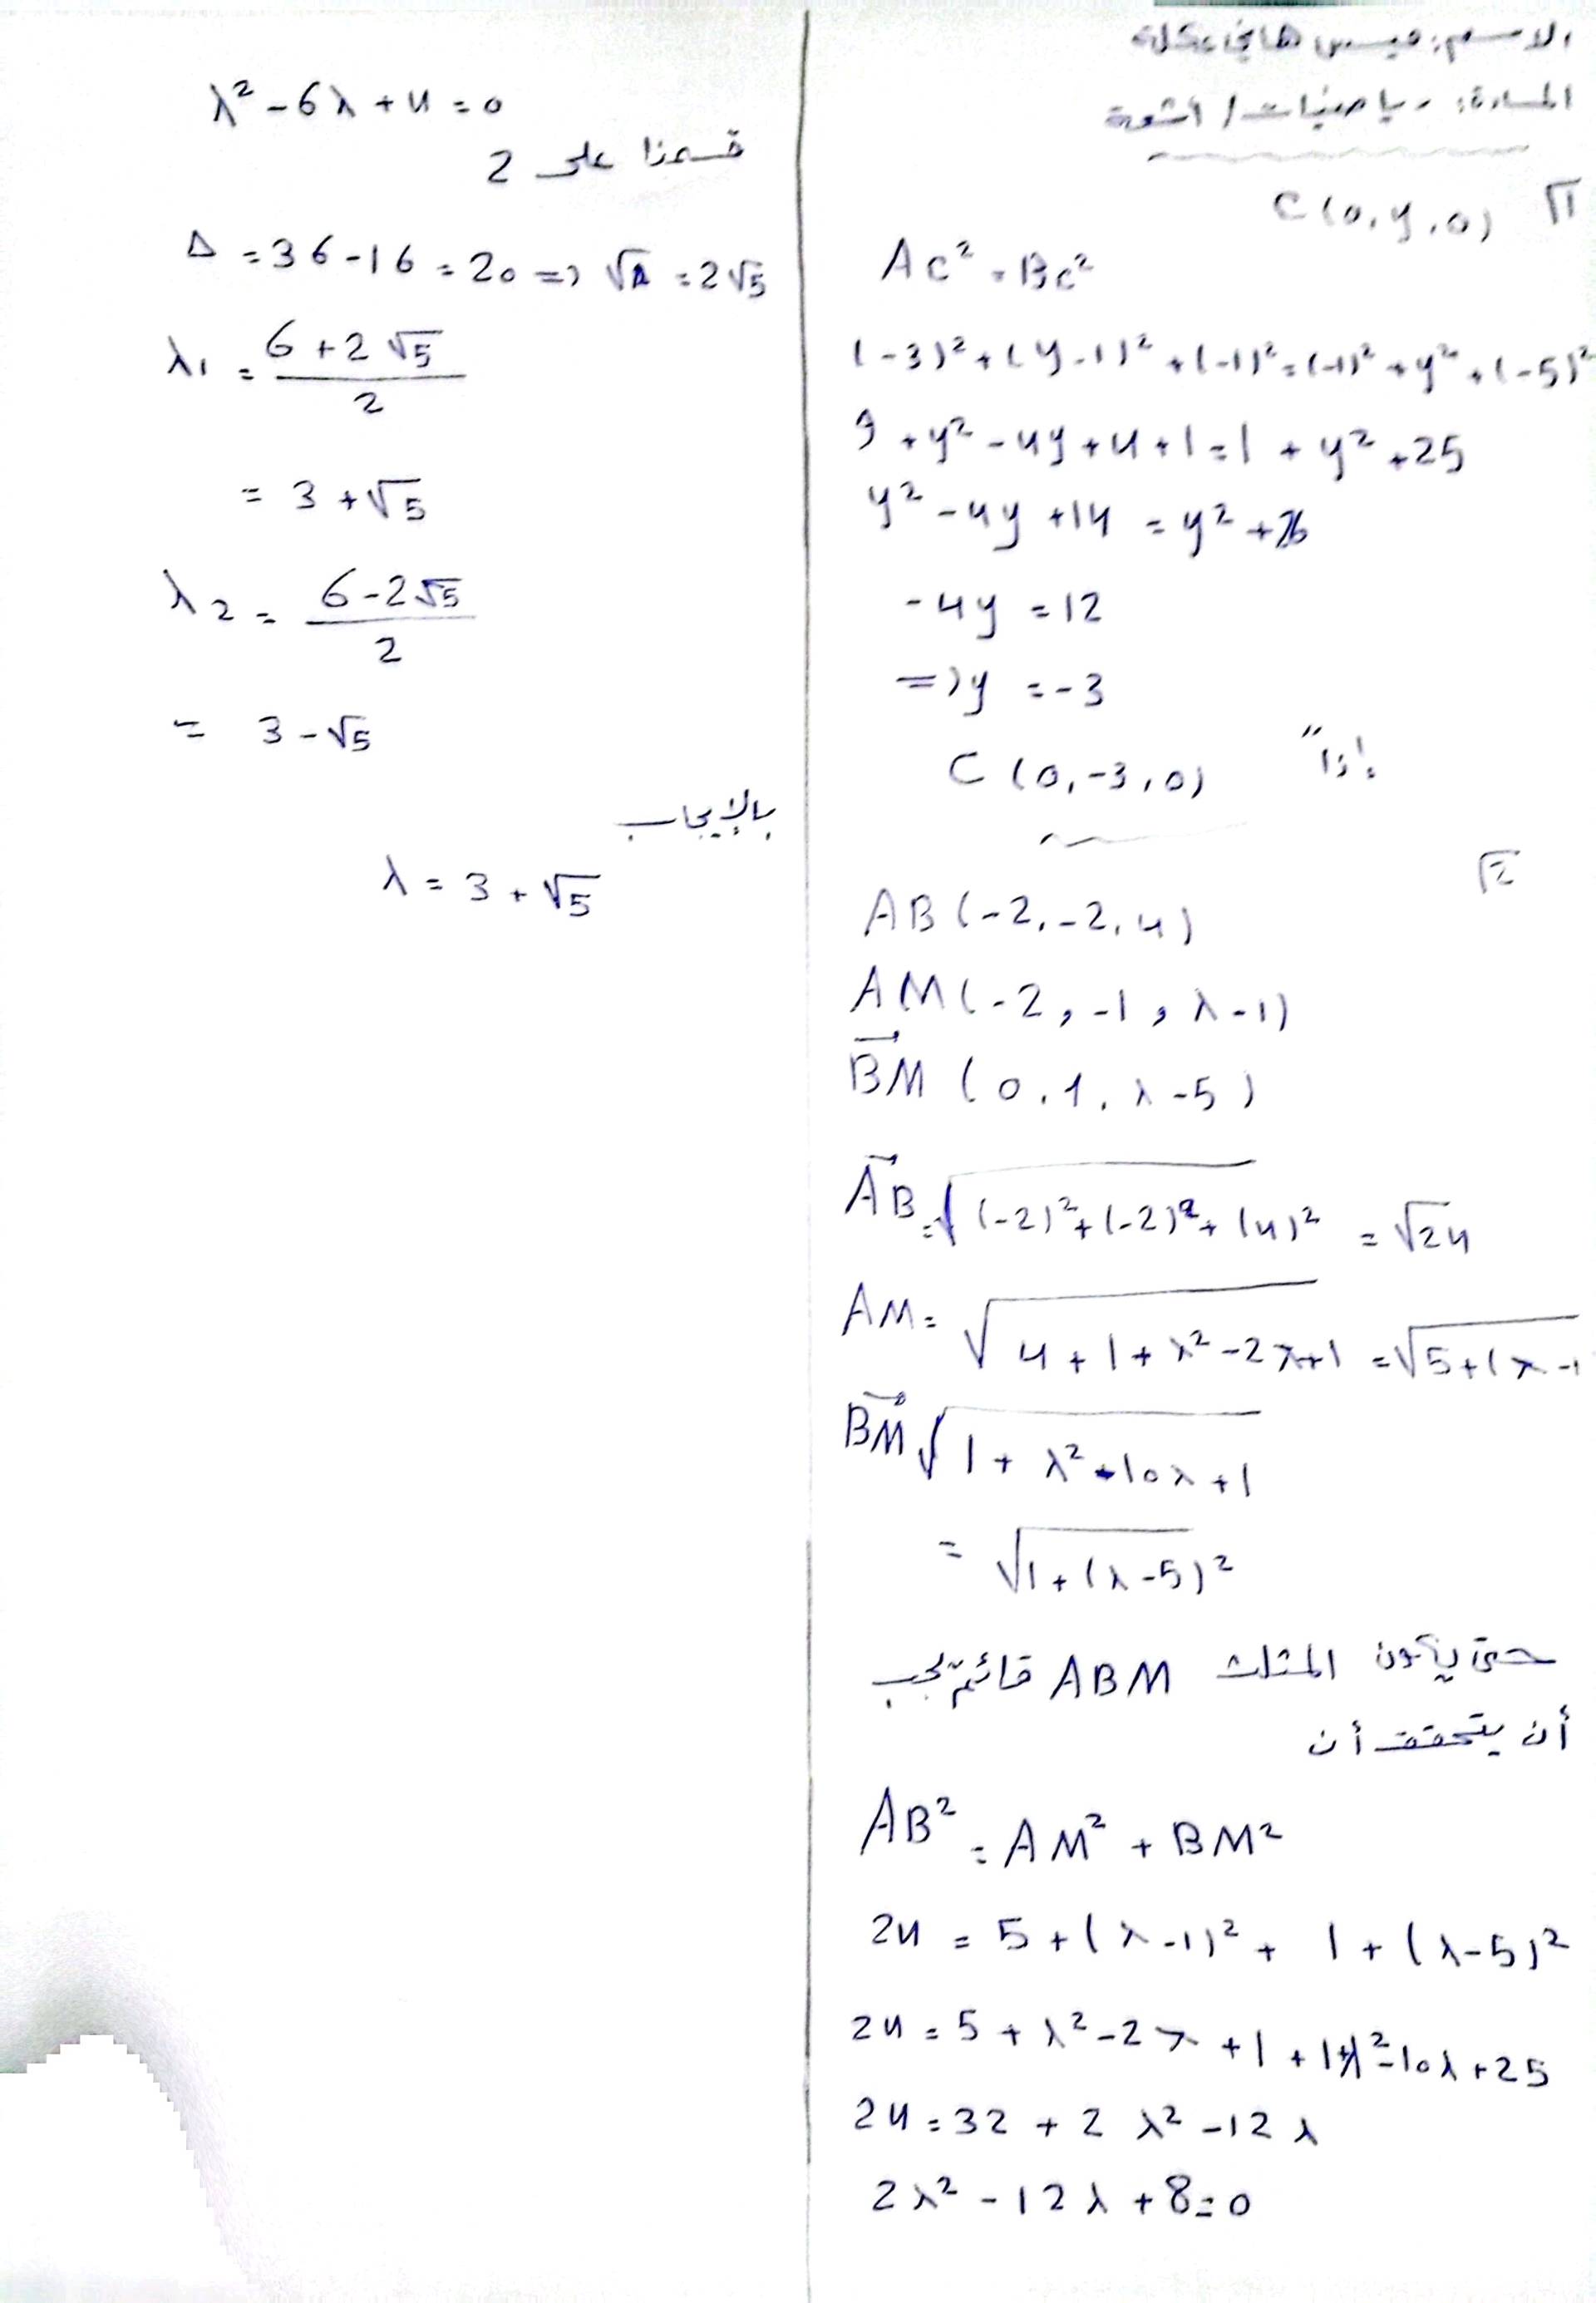 الاسم: ميس هاني عكله
المادة: رياضيات / أشعة
1 C(0, y, 0)
AC² = BC²
(-3)² + (y-1)² + (-1)² = (-1)² + y² + (-5)²
9 + y² - 4y + 4 + 1 = 1 + y² + 25
y² - 4y + 14 = y² + 26
-4y = 12
=> y = -3
إذاً C(0, -3, 0)
2
AB(-2, -2, 4)
AM(-2, -1, λ-1)
BM(0, 1, λ-5)
AB = √((-2)² + (-2)² + (4)²) = √24
AM = √(4 + 1 + λ² - 2λ + 1) = √(5 + (λ-1
BM √(1 + λ² - 10λ + 1)
= √(1 + (λ-5)²)
حتى يكون المثلث ABM قائم يجب
أن يتحقق أن
AB² = AM² + BM²
24 = 5 + (λ-1)² + 1 + (λ-5)²
24 = 5 + λ² - 2λ + 1 + 1 + λ² - 10λ + 25
24 = 32 + 2λ² - 12λ
2λ² - 12λ + 8 = 0
λ² - 6λ + 4 = 0
قسمنا على 2
Δ = 36 - 16 = 20 => √Δ = 2√5
λ1 = (6 + 2√5) / 2
= 3 + √5
λ2 = (6 - 2√5) / 2
= 3 - √5
بالإيجاب
λ = 3 + √5